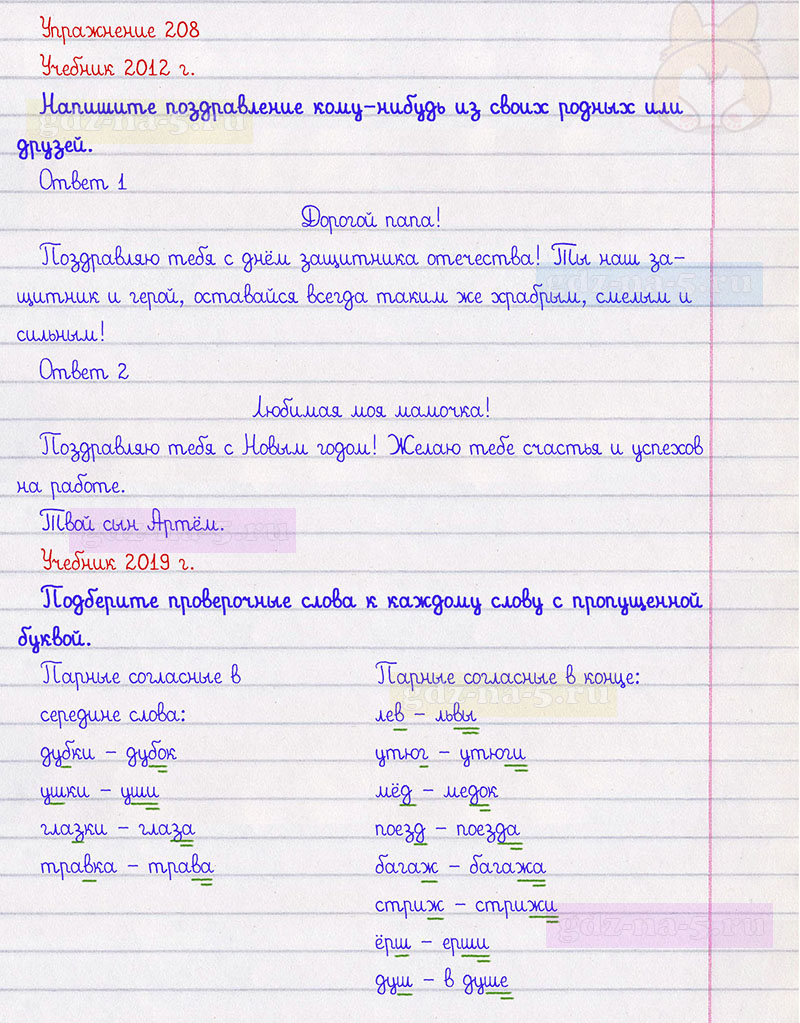 Упражнение 208
Учебник 2012 г.
Напишите поздравление кому-нибудь из своих родных или
друзей.
Ответ 1
Дорогой папа!
Поздравляю тебя с днём защитника отечества! Ты наш за-
щитник и герой, оставайся всегда таким же храбрым, смелым и
сильным!
Ответ 2
Любимая моя мамочка!
Поздравляю тебя с Новым годом! Желаю тебе счастья и успехов
на работе.
Твой сын Артём.
Учебник 2019 г.
Подберите проверочные слова к каждому слову с пропущенной
буквой.
Парные согласные в
середине слова:
дубки – дубок
ушки – уши
глазки – глаза
травка – трава
Парные согласные в конце:
лев – львы
утюг – утюги
мёд – медок
поезд – поезда
багаж – багажа
стриж – стрижи
ёрш – ерши
душ – в душе
gdz-na-5.ru
gdz-na-5.ru
gdz-na-5.ru
gdz-na-5.ru
gdz-na-5.ru